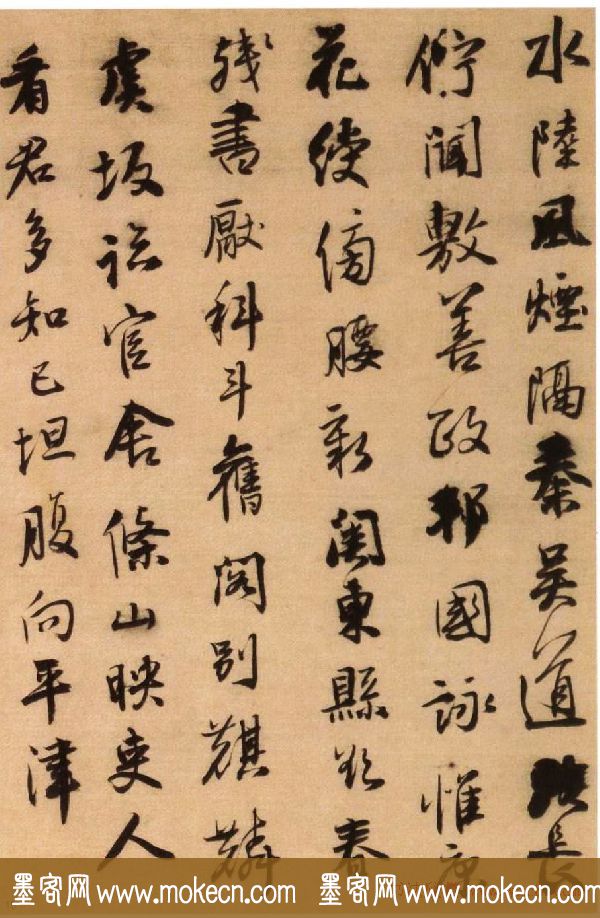 水陸風煙隔秦吳道路長
佇聞敷善政邦國詠惟康
花綬傍腰新關東縣欲春
殘書厭科斗舊閣別麒麟
虞坂臨官舍條山映吏人
看君多知己坦腹向平津
墨客网 www.mokecn.com 墨客网 www.mokecn.com